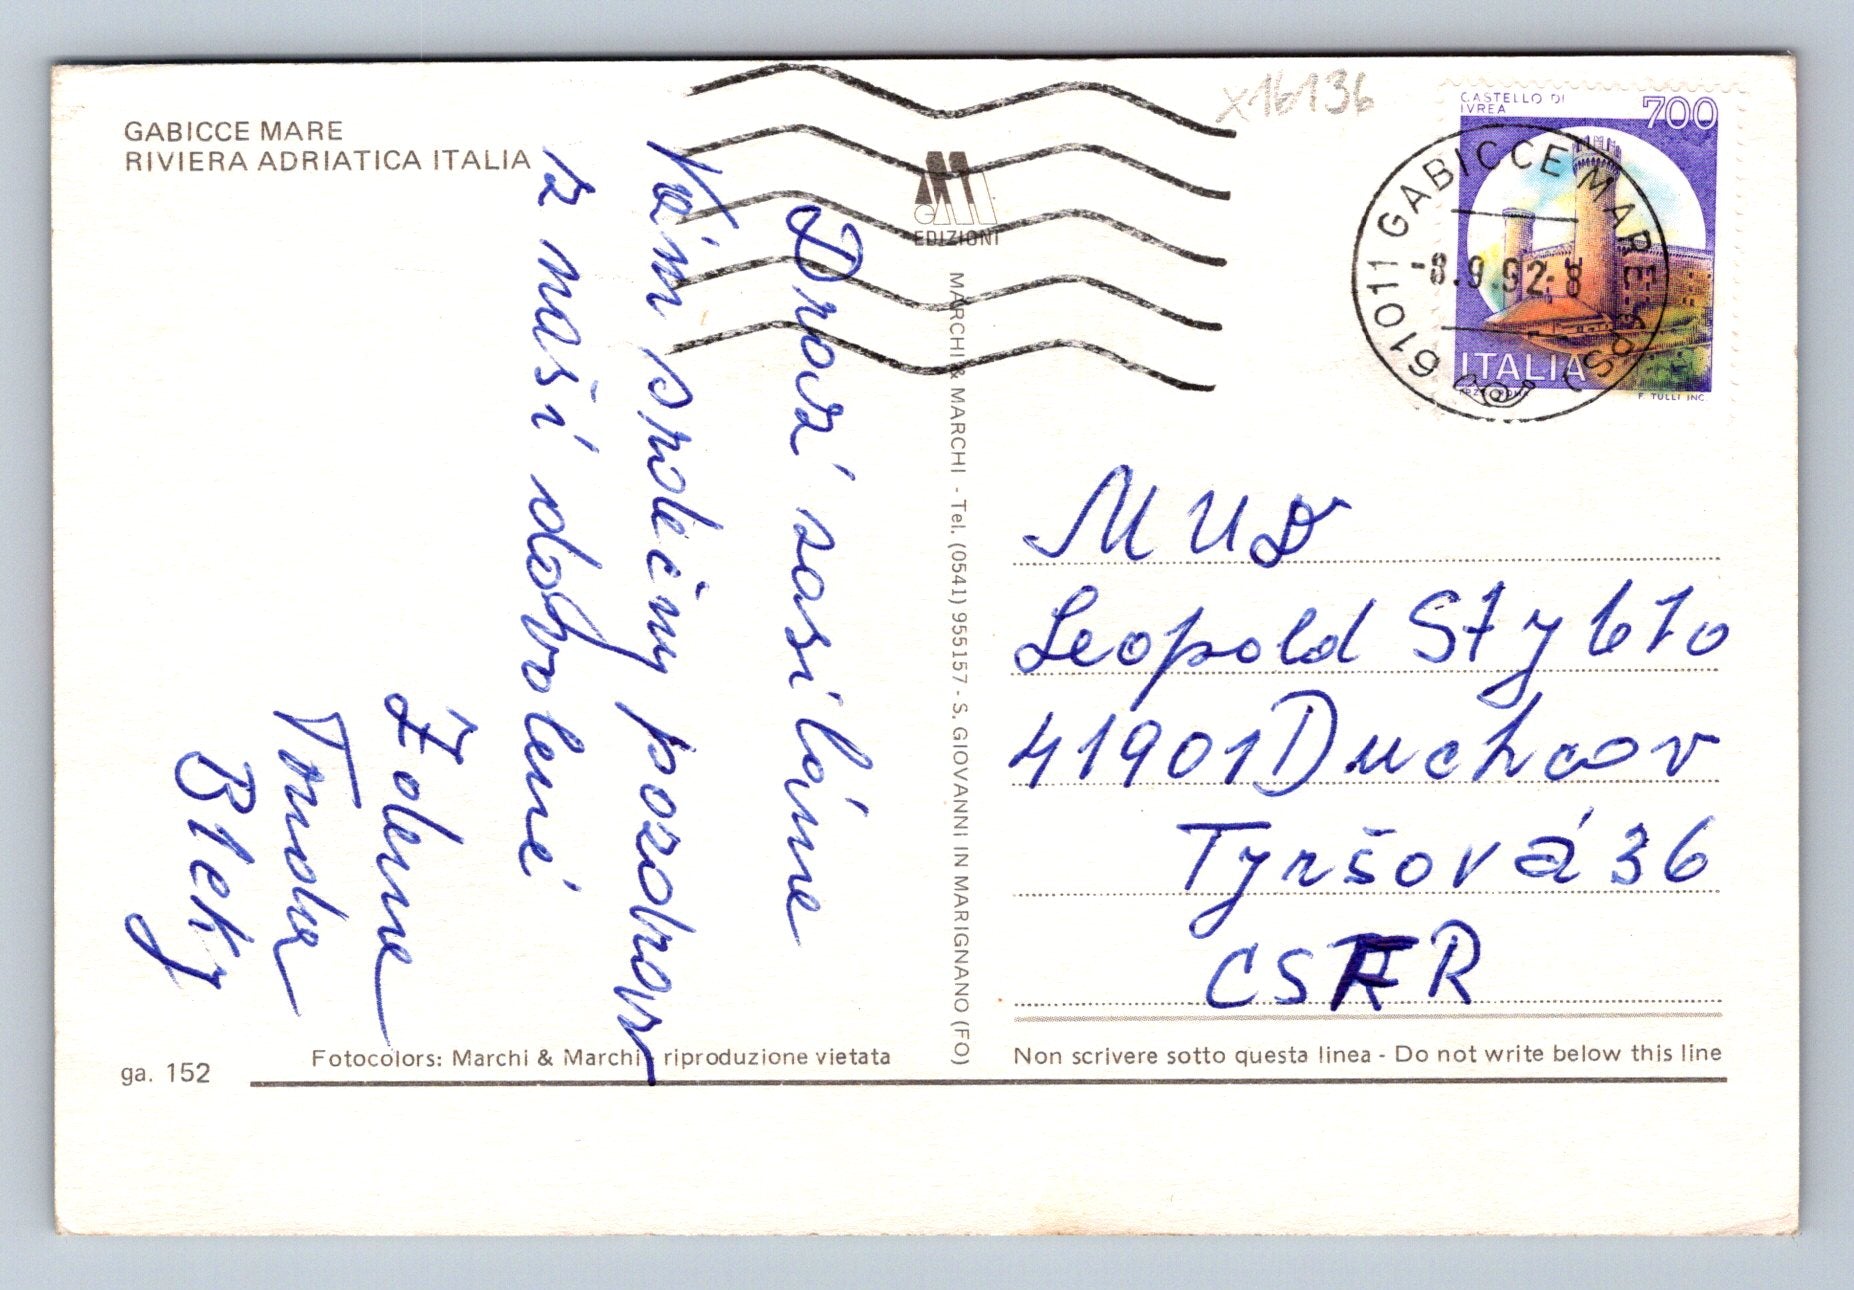 GABICCE MARE
RIVIERA ADRIATICA ITALIA
Drazí zasíláme
Vám srdečný pozdrav
z naší dovolené
Zdena
Tonda
B
EDIZIONI
MARCHI & MARCHI - Tel. (0541) 955157 - S. GIOVANNI IN MARIGNANO (FO)
x16136
CASTELLO DI
IVREA
700
ITALIA
F. TULLI INC.
61011 GABICCE MARE (PS)
-8.9.92-8
MUD
Leopold Stybto
41901 Duchcov
Tyršová 36
CSFR
Fotocolors: Marchi & Marchi - riproduzione vietata
Non scrivere sotto questa linea - Do not write below this line
ga. 152